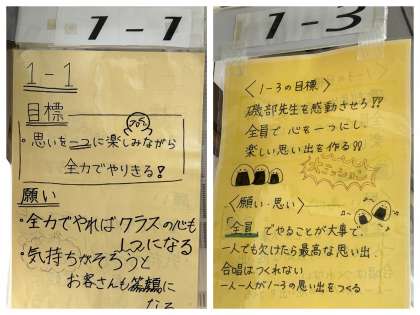 1-1
1-1
目標
・思いを一つに楽しみながら
全力でやりきる!
願い
・全力でやればクラスの心も
1つになる
・気持ちがそろうと
お客さんも笑顔に
なる
1-3
〈1-3の目標〉
磯部先生を感動させろ!?
全員で心を一つにし、
楽しい思い出を作る!?
〈願い・思い〉
「全員」でやることが大事で、
一人でも欠けたら最高な思い出、
合唱はつくれない
一人一人が1-3の思い出をつくる